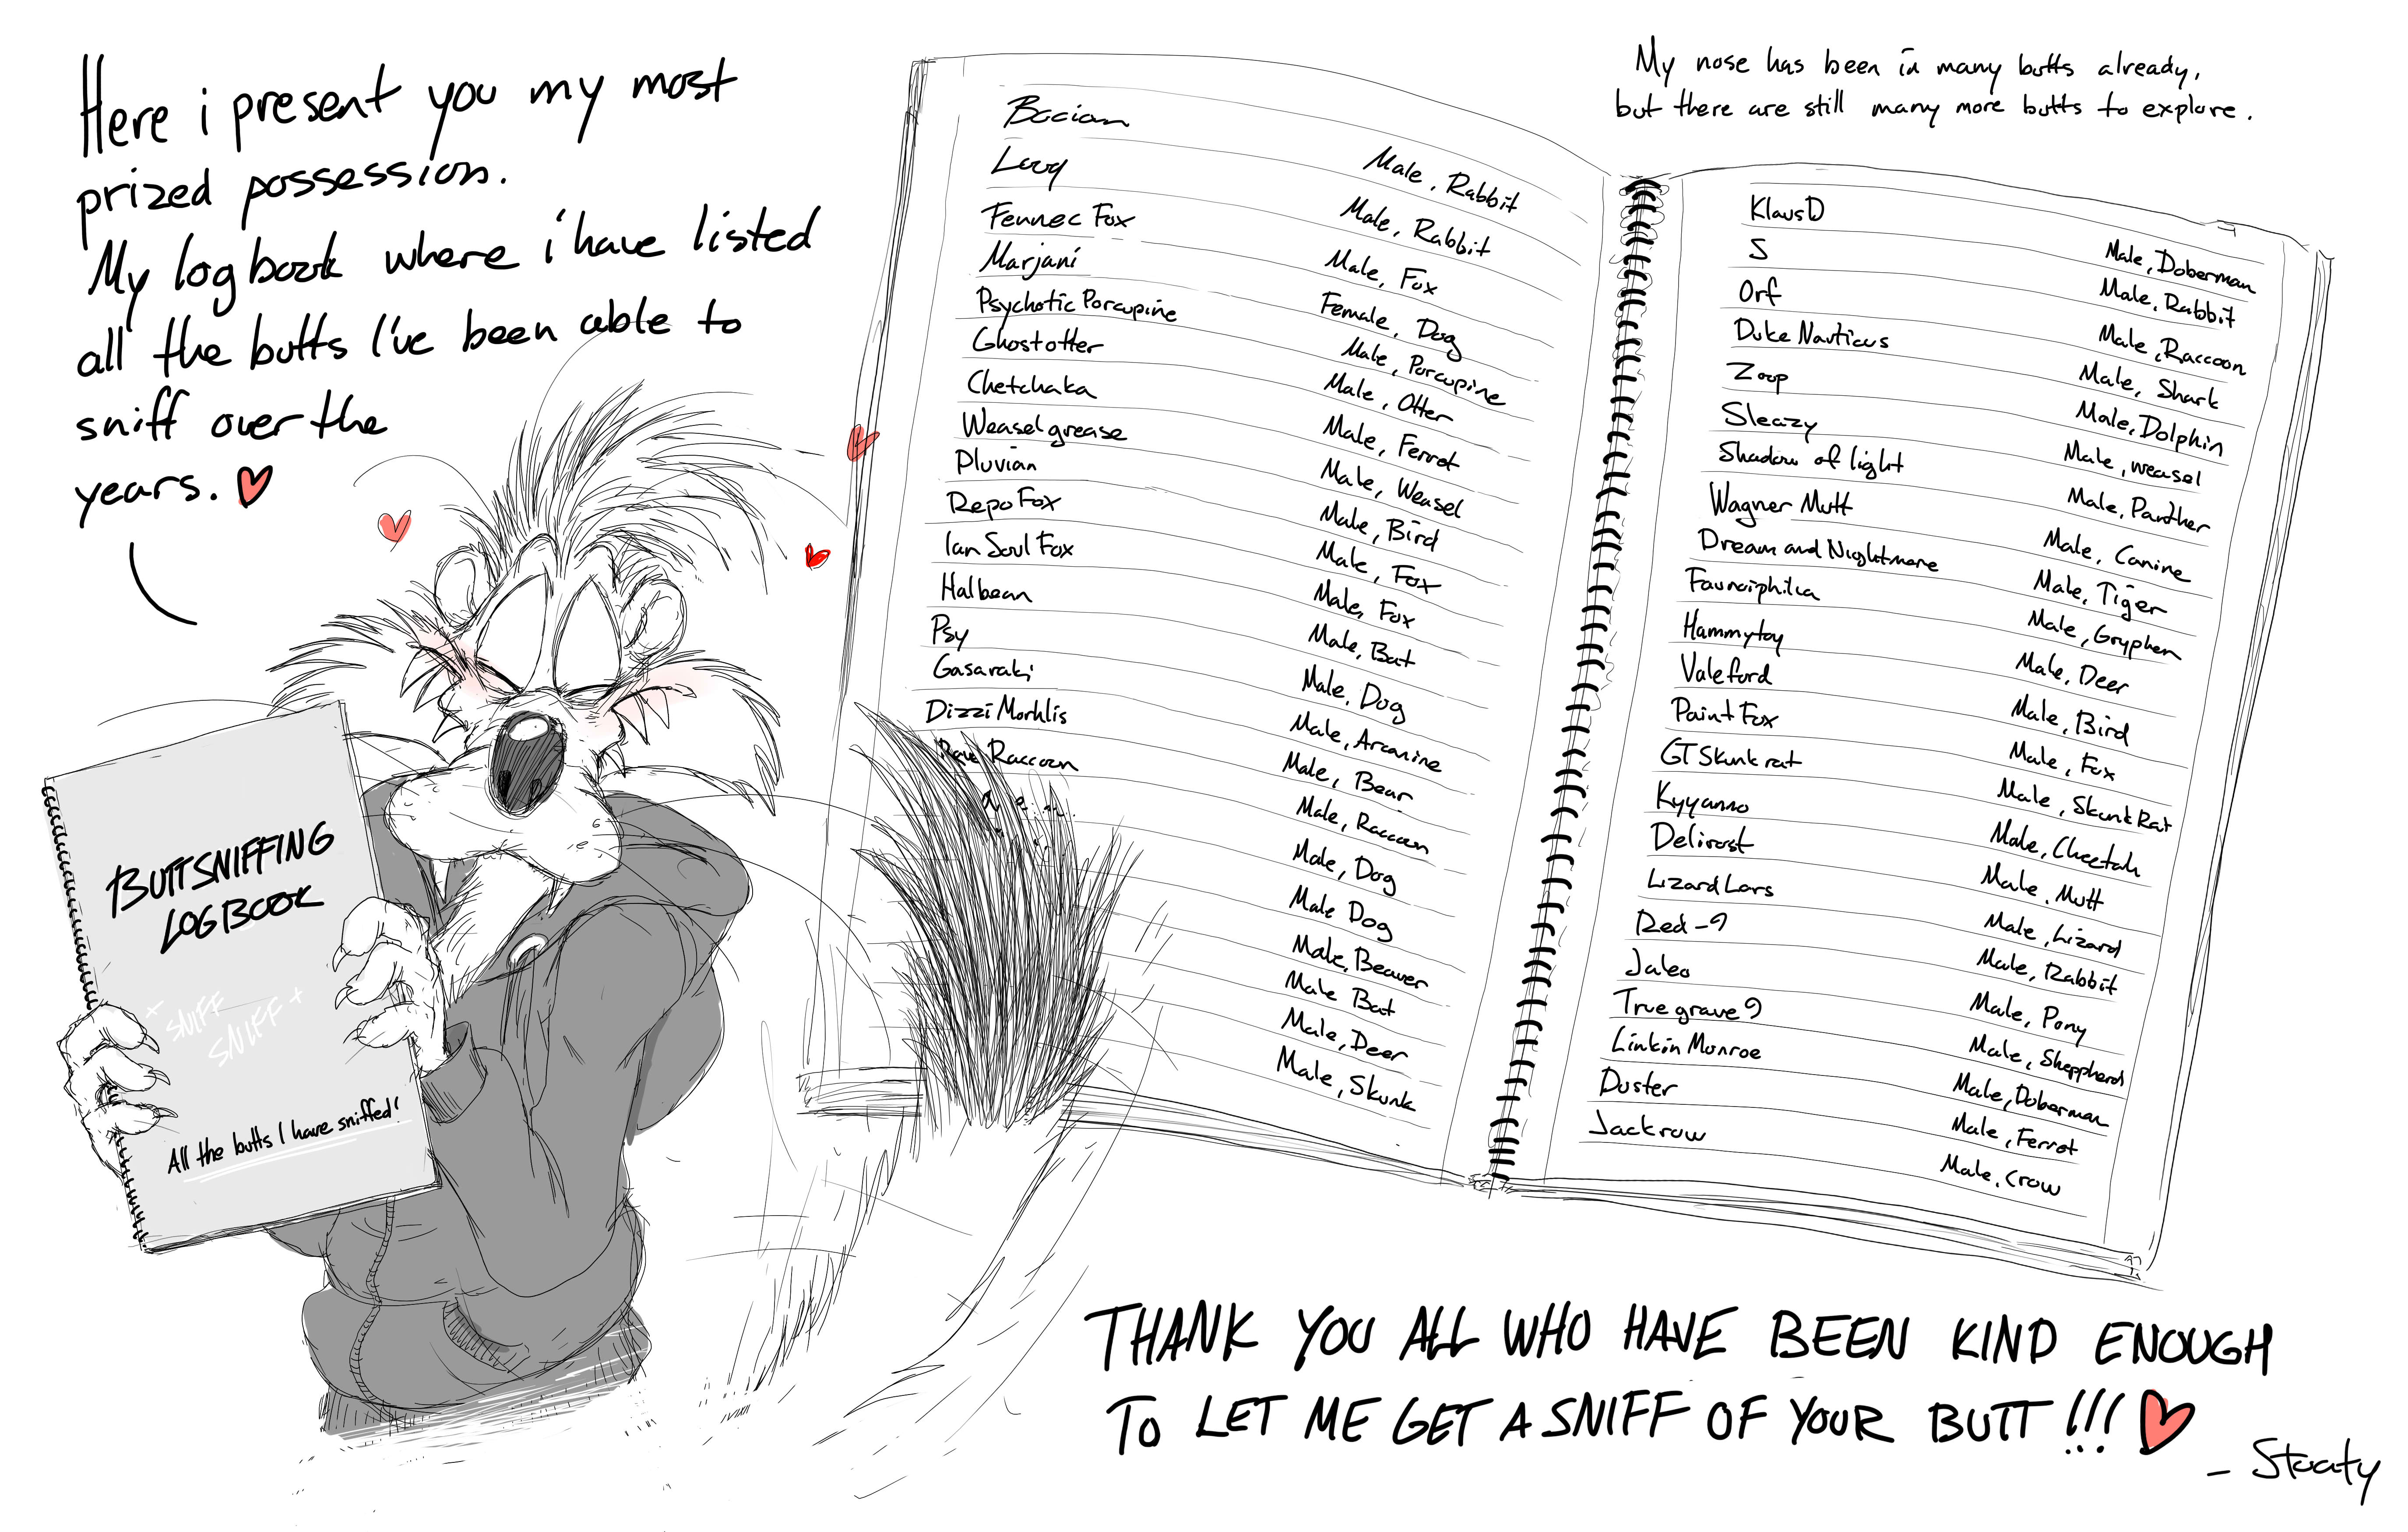 Here i present you my most
prized possession.
My logbook where i have listed
all the butts I've been able to
sniff over the
years.
BUTTSNIFFING
LOGBOOK
SNIFF
SNIFF
All the butts I have sniffed!
My nose has been in many butts already,
but there are still many more butts to explore.
Bacian Male, Rabbit
Looq Male, Rabbit
Fennec Fox Male, Fox
Marjani Female, Dog
Psychotic Porcupine Male, Porcupine
Ghostotter Male, Otter
Chetchaka Male, Ferret
Weaselgrease Male, Weasel
Pluvian Male, Bird
Repo Fox Male, Fox
Ian Soul Fox Male, Fox
Halbean Male, Bat
Psy Male, Dog
Gasaraki Male, Arcanine
Dizzi Morhlis Male, Bear
Raccoon Male, Raccoon
Male, Dog
Male Dog
Male, Beaver
Male Bat
Male, Deer
Male, Skunk
KlausD Male, Doberman
S Male, Rabbit
Orf Male, Raccoon
Duke Nauticus Male, Shark
Zoop Male, Dolphin
Sleazy Male, weasel
Shadow of light Male, Panther
Wagner Mutt Male, Canine
Dream and Nightmare Male, Tiger
Faunaiphilia Male, Gryphen
Hammytoy Male, Deer
Valeford Male, Bird
Paint Fox Male, Fox
GT Skunk rat Male, Skunk Rat
Kyyanno Male, Cheetah
Delirost Male, Mutt
Lizard Lars Male, Lizard
Red-9 Male, Rabbit
Jaleo Male, Pony
True grave9 Male, Shepperd
Linkin Monroe Male, Doberman
Duster Male, Ferret
Jackrow Male, Crow
THANK YOU ALL WHO HAVE BEEN KIND ENOUGH
TO LET ME GET A SNIFF OF YOUR BUTT!!!
- Stoaty